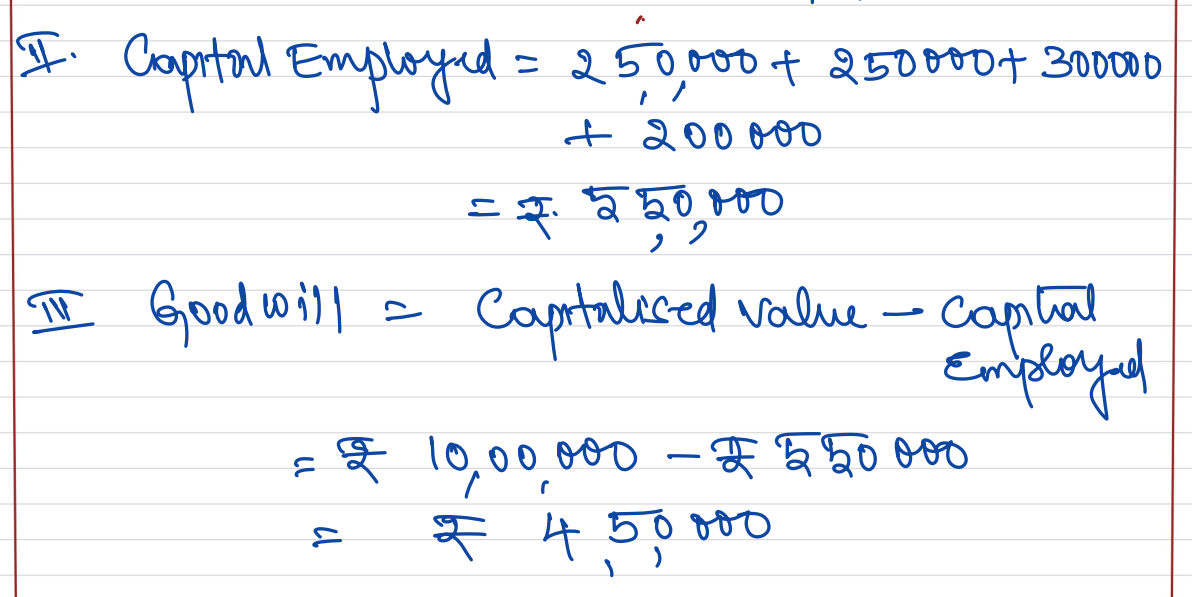 II. Capital Employed = 2 50,000 + 250000 + 300000
+ 200000
= ₹. 5 50,000
III Goodwill = Capitalised value - Capital
Employed
= ₹ 10,00,000 - ₹ 550000
= ₹ 4,50,000